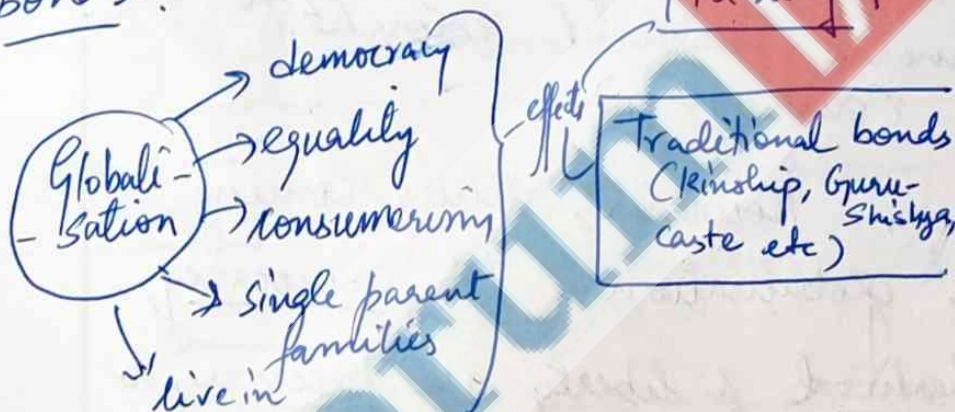 Globali -
- sation
democracy
equality
consumerism
single parent
families
live in
effects
Traditional bonds
(Kinship, Guru-
Shishya,
caste etc)